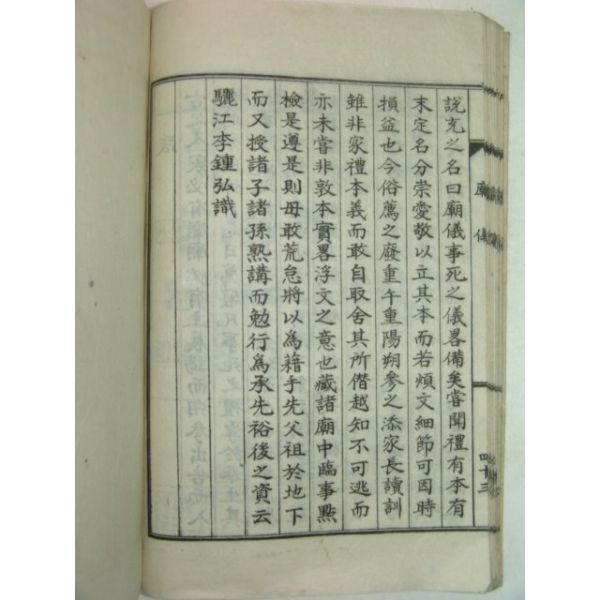 說充之名曰廟儀事死之儀畧備矣嘗聞禮有本有
末定名分崇愛敬以立其本而若煩文細節可因時
損益也今俗薦之廢重午重陽朔參之添家長讀訓
雖非家禮本義而敢自取舍其所僭越知不可逃而
亦未嘗非敦本實畧浮文之意也藏諸廟中臨事點
檢是遵是則毋敢荒怠將以爲藉手先父祖於地下
而又授諸子諸孫熟講而勉行爲承先裕後之資云
驪江李鍾弘識
廟儀
四十三